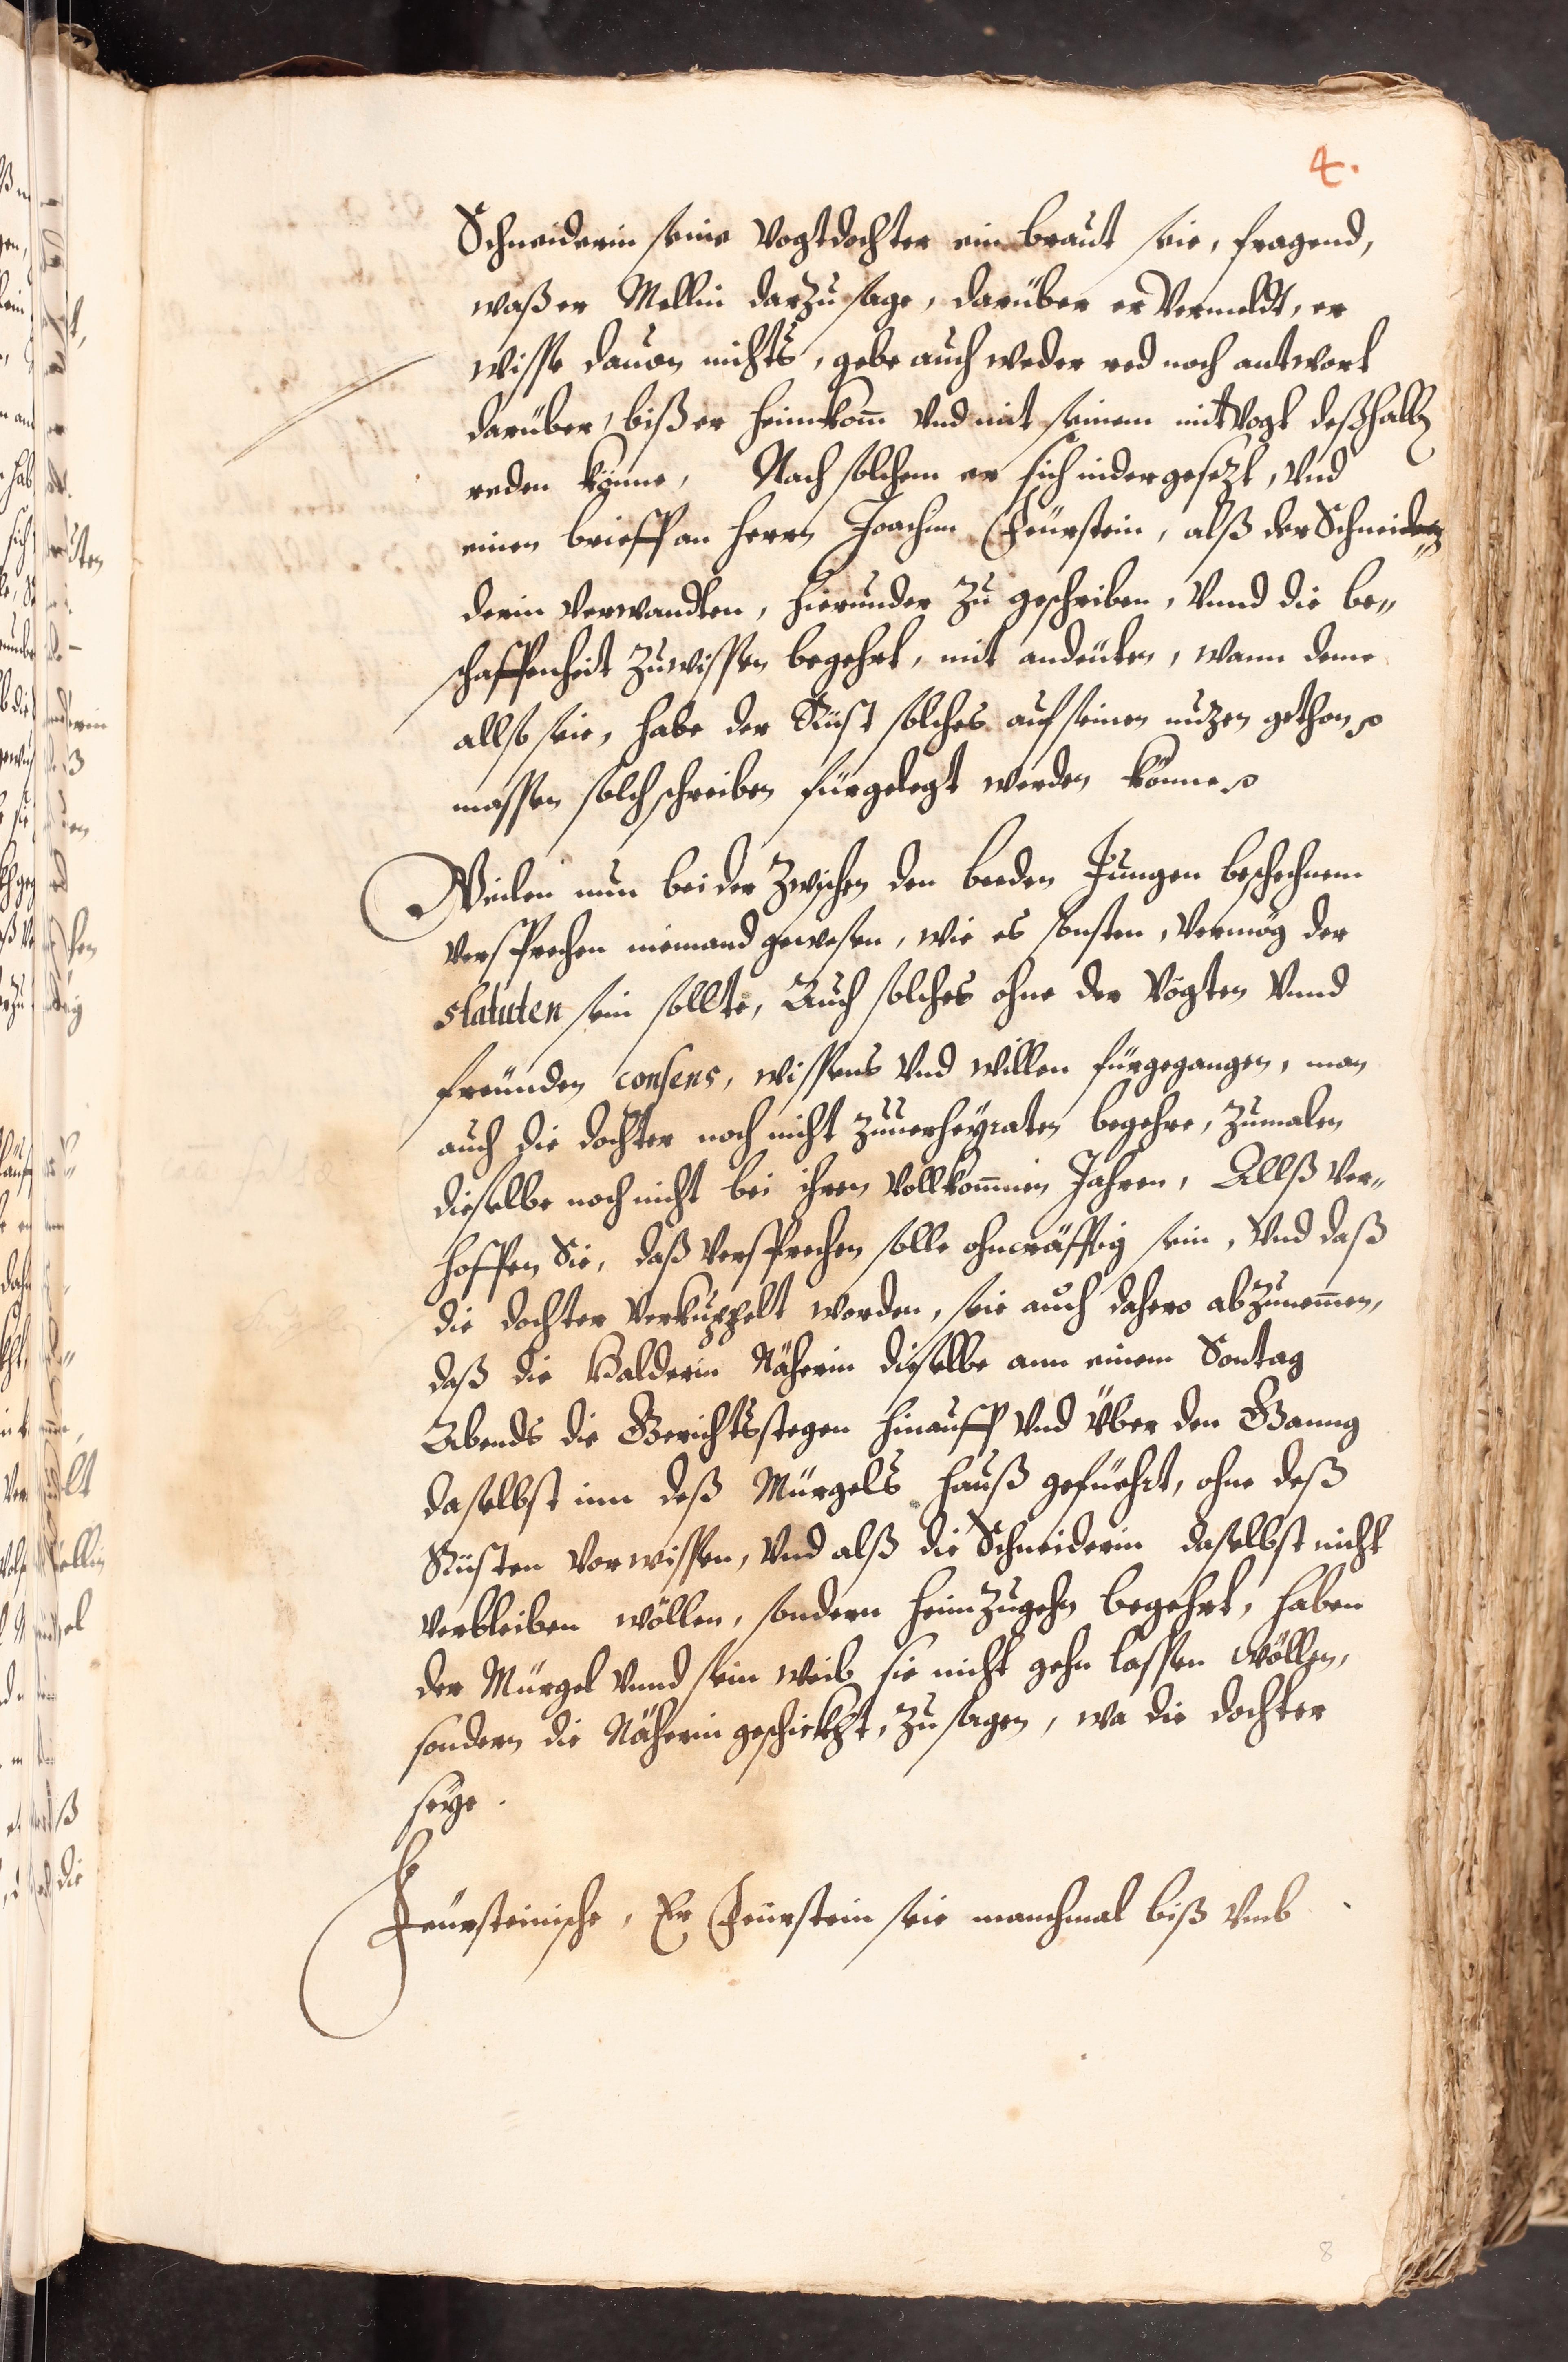 4.
Schneiderin seine Vogtdochter ein braut seie, fragend,
waß er Mellin darzu sage, darüber er Vermeldt, er
wisse dauon nichts, gebe auch weder red noch antwort
darüber, biß er heimkom̄ Vnd mit seinem mitVogt deßhalb
reden könne, Nach solchem er sich nidergesezt, Vnd
einen brieff an herrn Joachim Feürstein, alß der Schneid
derin Verwandten, hierunder zu geschriben, Vnnd die be„
schaffenheit zuwissen begehrt, mit andeüten, wann deme
allso seie, habe der Rüst solches auf seinen nuzen gethon
massen solch schreiben fürgelegt werden könne
Weilen nun bei der zwischen den beeden Jungen beschechnem
Versprechen niemand gewesen, wie es sonsten, Vermög der
statuten sein sollte, Auch solches ohne der Vögten Vnnd
freünden consens, wissens Vnd willen fürgegangen, man
auch die dochter noch nicht zuuerheyraten begehre, zumalen
dieselbe noch nicht bei ihren Vollkom̄nen Jahren, Allß Ver„
hoffen Sie, daß Versprechen solle ohncräfftig sein, Vnd daß
die dochter Verkupplt worden, seie auch dahero abzunem̄en,
daß die Balderin Näherin dieselbe ann einem Sontag
Abends die Gerichtsstegen hinauff Vnd Über den Ganng
daselbst inn deß Mürgels hauß gefüehrt, ohne deß
Rüsten Vorwissen, Vnd alß die Schneiderin daselbst nicht
Verbleiben wöllen, sondern heimzugehn begehrt, haben
der Mürgel Vnnd sein weib sie nicht gehn lassen wöllen,
sondern die Näherin geschickht, zu sagen, wa die dochter
seye.
Feürsteinische, Er Feürstein seie manchmal biß Vmb
8